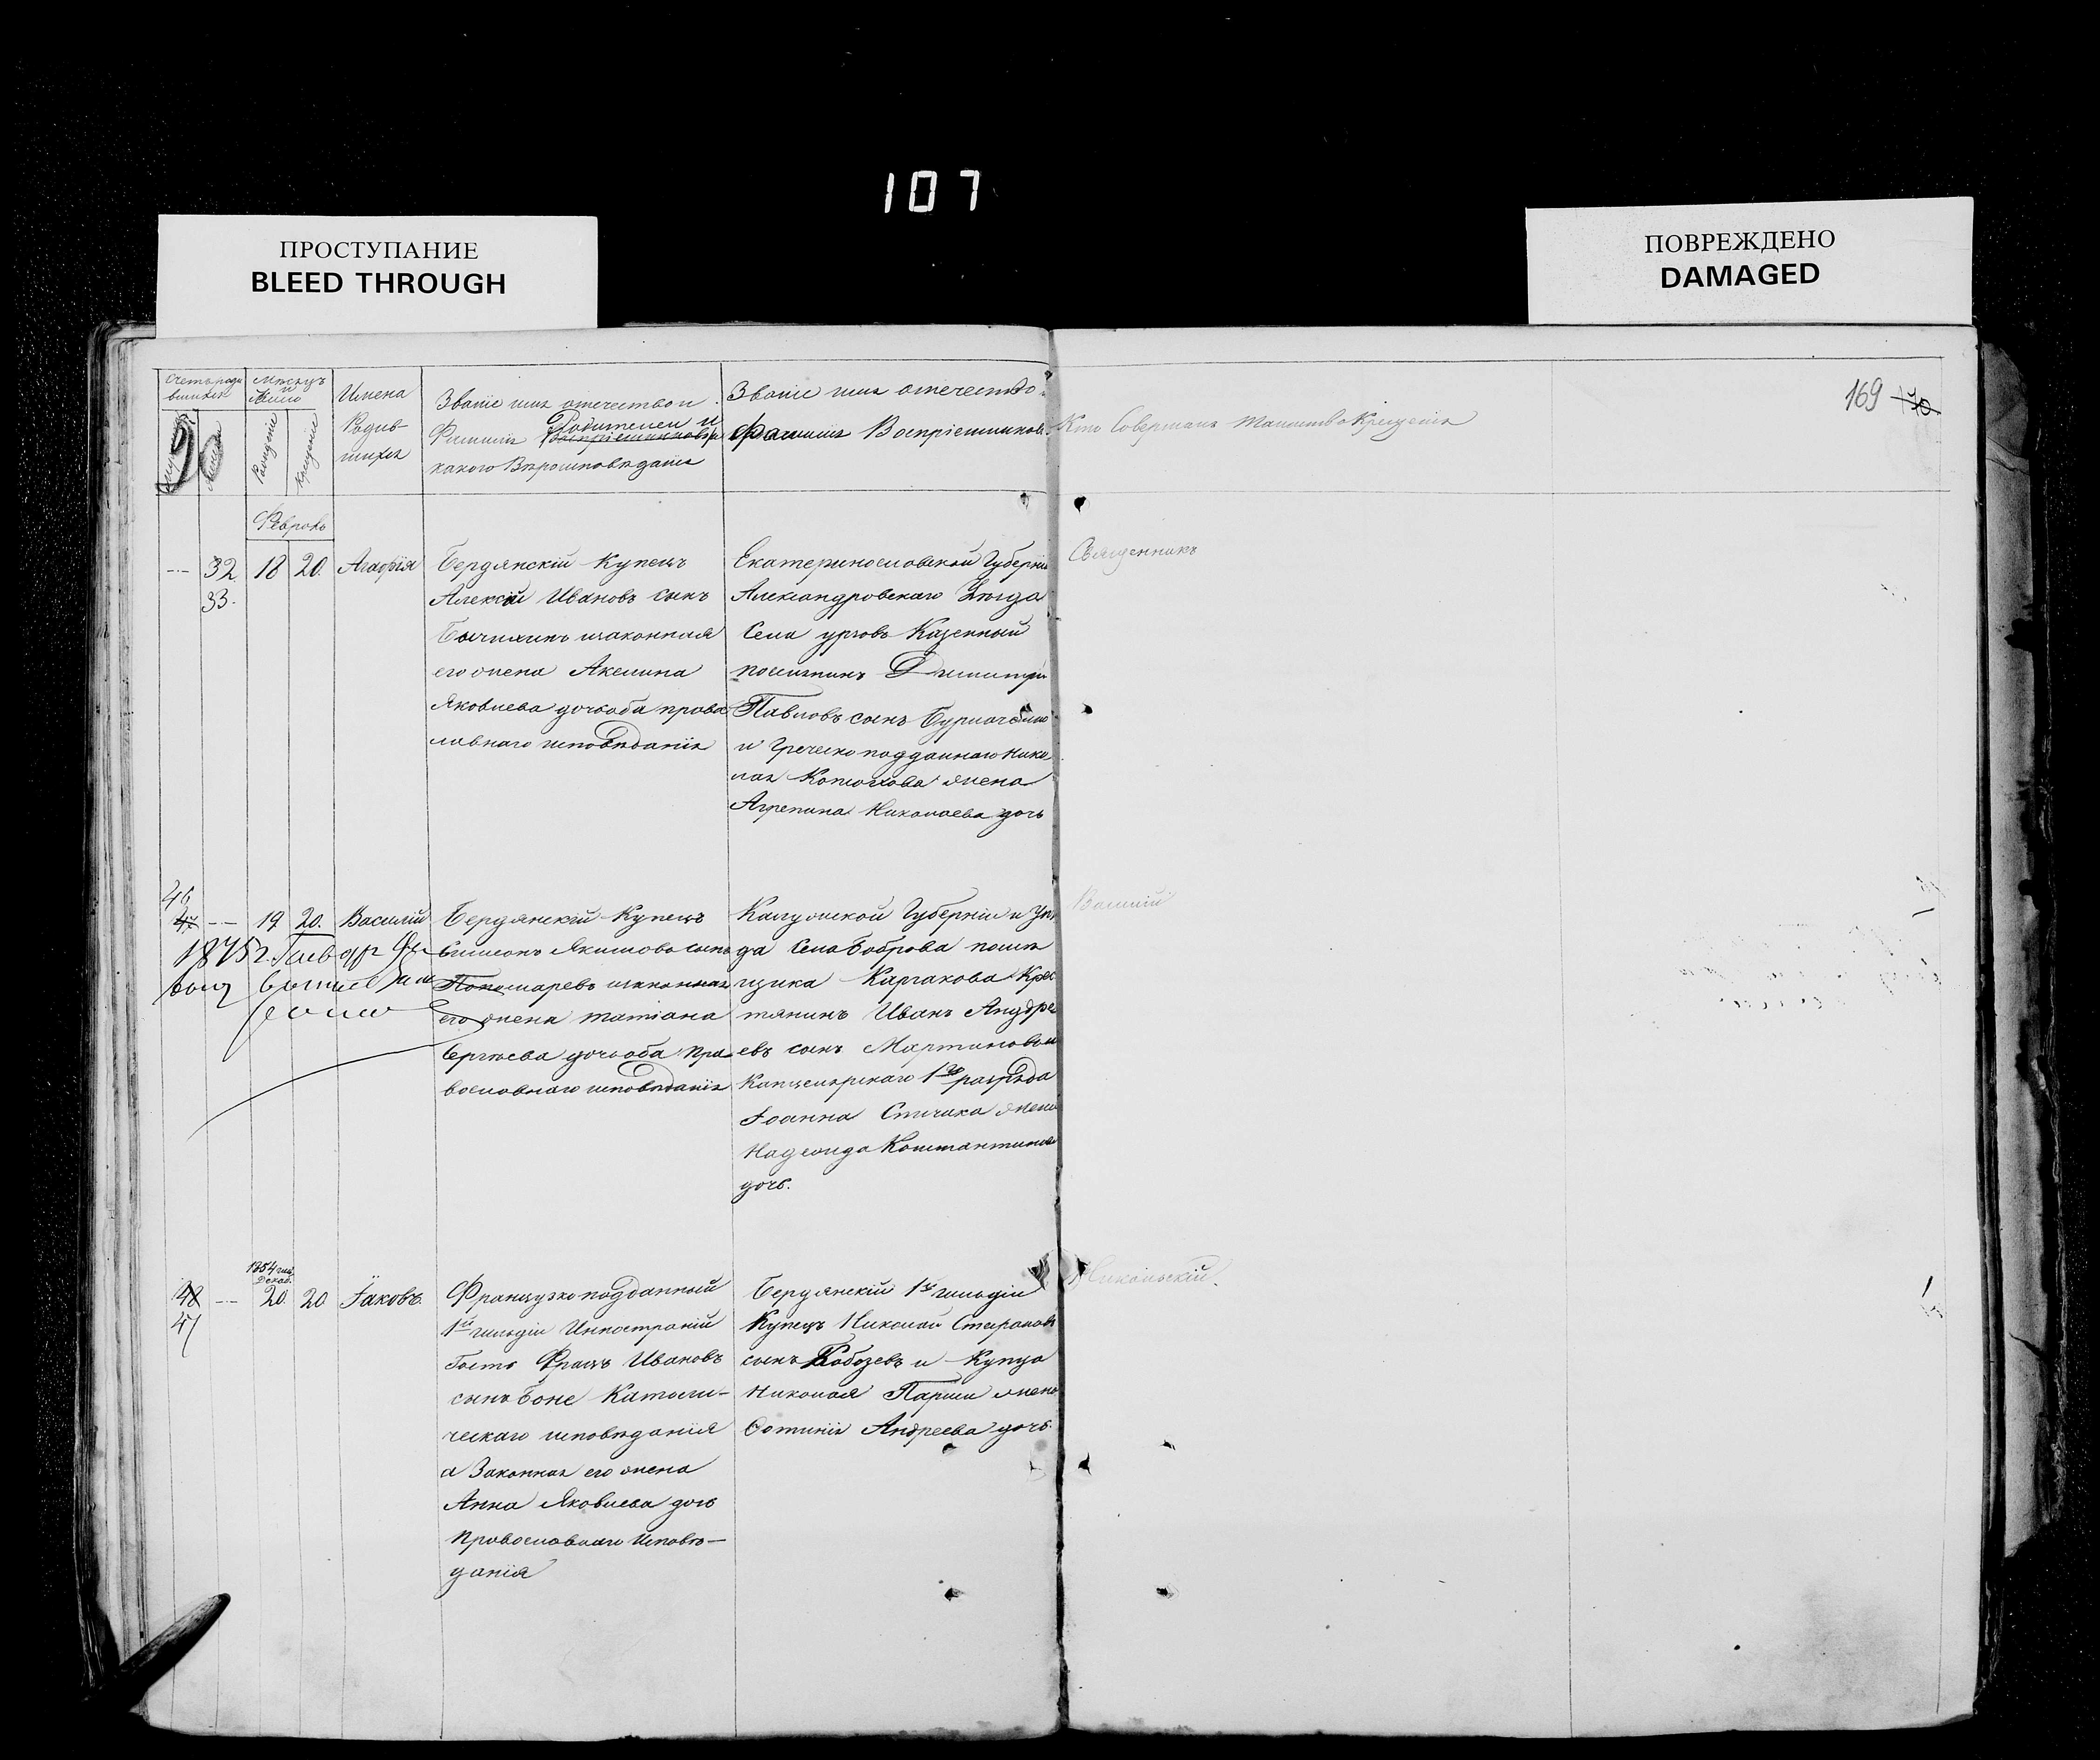 107
ПРОСТУПАНИЕ
BLEED THROUGH
ПОВРЕЖДЕНО
DAMAGED
169 170
Счетъ роди
вшихся
Мѣсяцъ
и
Число
Рожденіе
Крещеніе
Имена
Родив-
шихся
Званіе имя отечество и
Родителей и
Фамилія Воспріемниковъ
какого Вѣроисповѣданія
Званіе имя отечество
Фамилія Воспріемников
Кто Совершалъ Таинство Крещенія
Февраль
32 18 20. Агафія
33.
Бердянскій Купецъ
Алексѣй Ивановъ сынъ
законная
его жена Акелина
Яковлева дочь оба право
лавнаго исповѣданія
Екатеринославской Губерніи
Александровскаго Уѣзда
Села Казенный
поселянинъ Димитри
Павловъ сынъ
и Греческо подданнаго Нико
лая жена
Агрепина Николаева дочь
Священникъ
46
47 19 20. Василій
1875 г.
Бердянскій Купецъ
Симеонъ Якимовъ сынъ
Пономаревъ изаконная
его жена татіана
Сергѣева дочь оба пра
вославнаго исповѣданія
Калужской Губерніи и Уѣз
да Села Боброва помѣ
щика Каргакова Крес
тянинъ Иванъ Андре
евъ сынъ Мартиновъ и
Канцелярскаго 1го разряда
Іоанна Спичака жена
Надежда Константинова
дочь.
Василій
1854 года
Декаб.
48 20. 20 Іаковъ.
47
Французко подданный
1й гильдіи Иностраній
Гость Францъ Ивановъ
сынъ Боне Католи-
ческаго исповѣданія
а Законная его жена
Анна Яковлева дочь
Православнаго Исповѣ-
данія
Бердянскій 1й гильдіи
Купецъ Николай Стефановъ
сынъ Кобозевъ и Купца
Николая Парши жена
Фотинія Андреева дочь.
Никольскій.